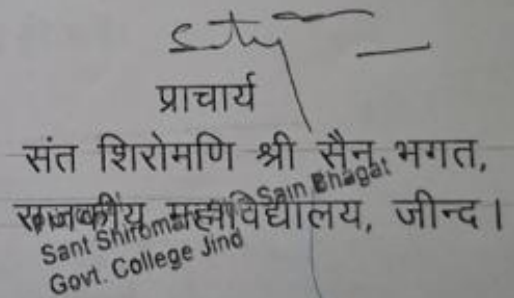 प्राचार्य
संत शिरोमणि श्री सैन भगत,
राजकीय महाविद्यालय, जीन्द।
Sant Shiromani Sain Bhagat
Govt. College Jind